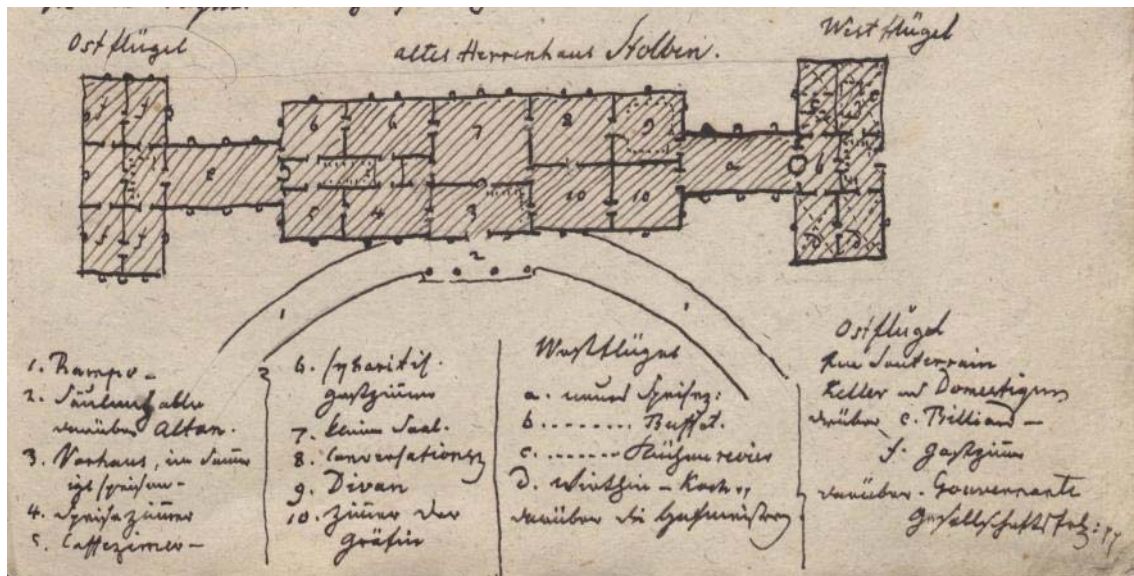 Ostflügel
altes Herrenhaus Stolben.
Westflügel
f f 6 6 7 8 9 c c
e a b
f f 5 4 3 10 10 d d
2
1 1
1. Rampe –
2. Säulenhalle
darüber Altan.
3. Vorhaus, im
speisen –
4. Speisezimmer
5. Caffezimer –
6.
gastzimer
7. kleiner Saal.
8. Conversationsz
9. Divan
10. Zimer der
Gräfin
Westflügel
a. neues Speisez:
b. ....... Buffet.
c. ....... Küchenrevier
d. Wirthin – Koch
darüber die Hofmeisterey
Ostflügel
Souterrain
Keller und Domestiquen
darüber e. Billiard –
f. gastzimer
darüber. Gouvernante